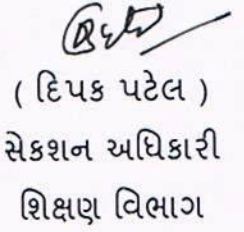 ( દિપક પટેલ )
સેકશન અધિકારી
શિક્ષણ વિભાગ